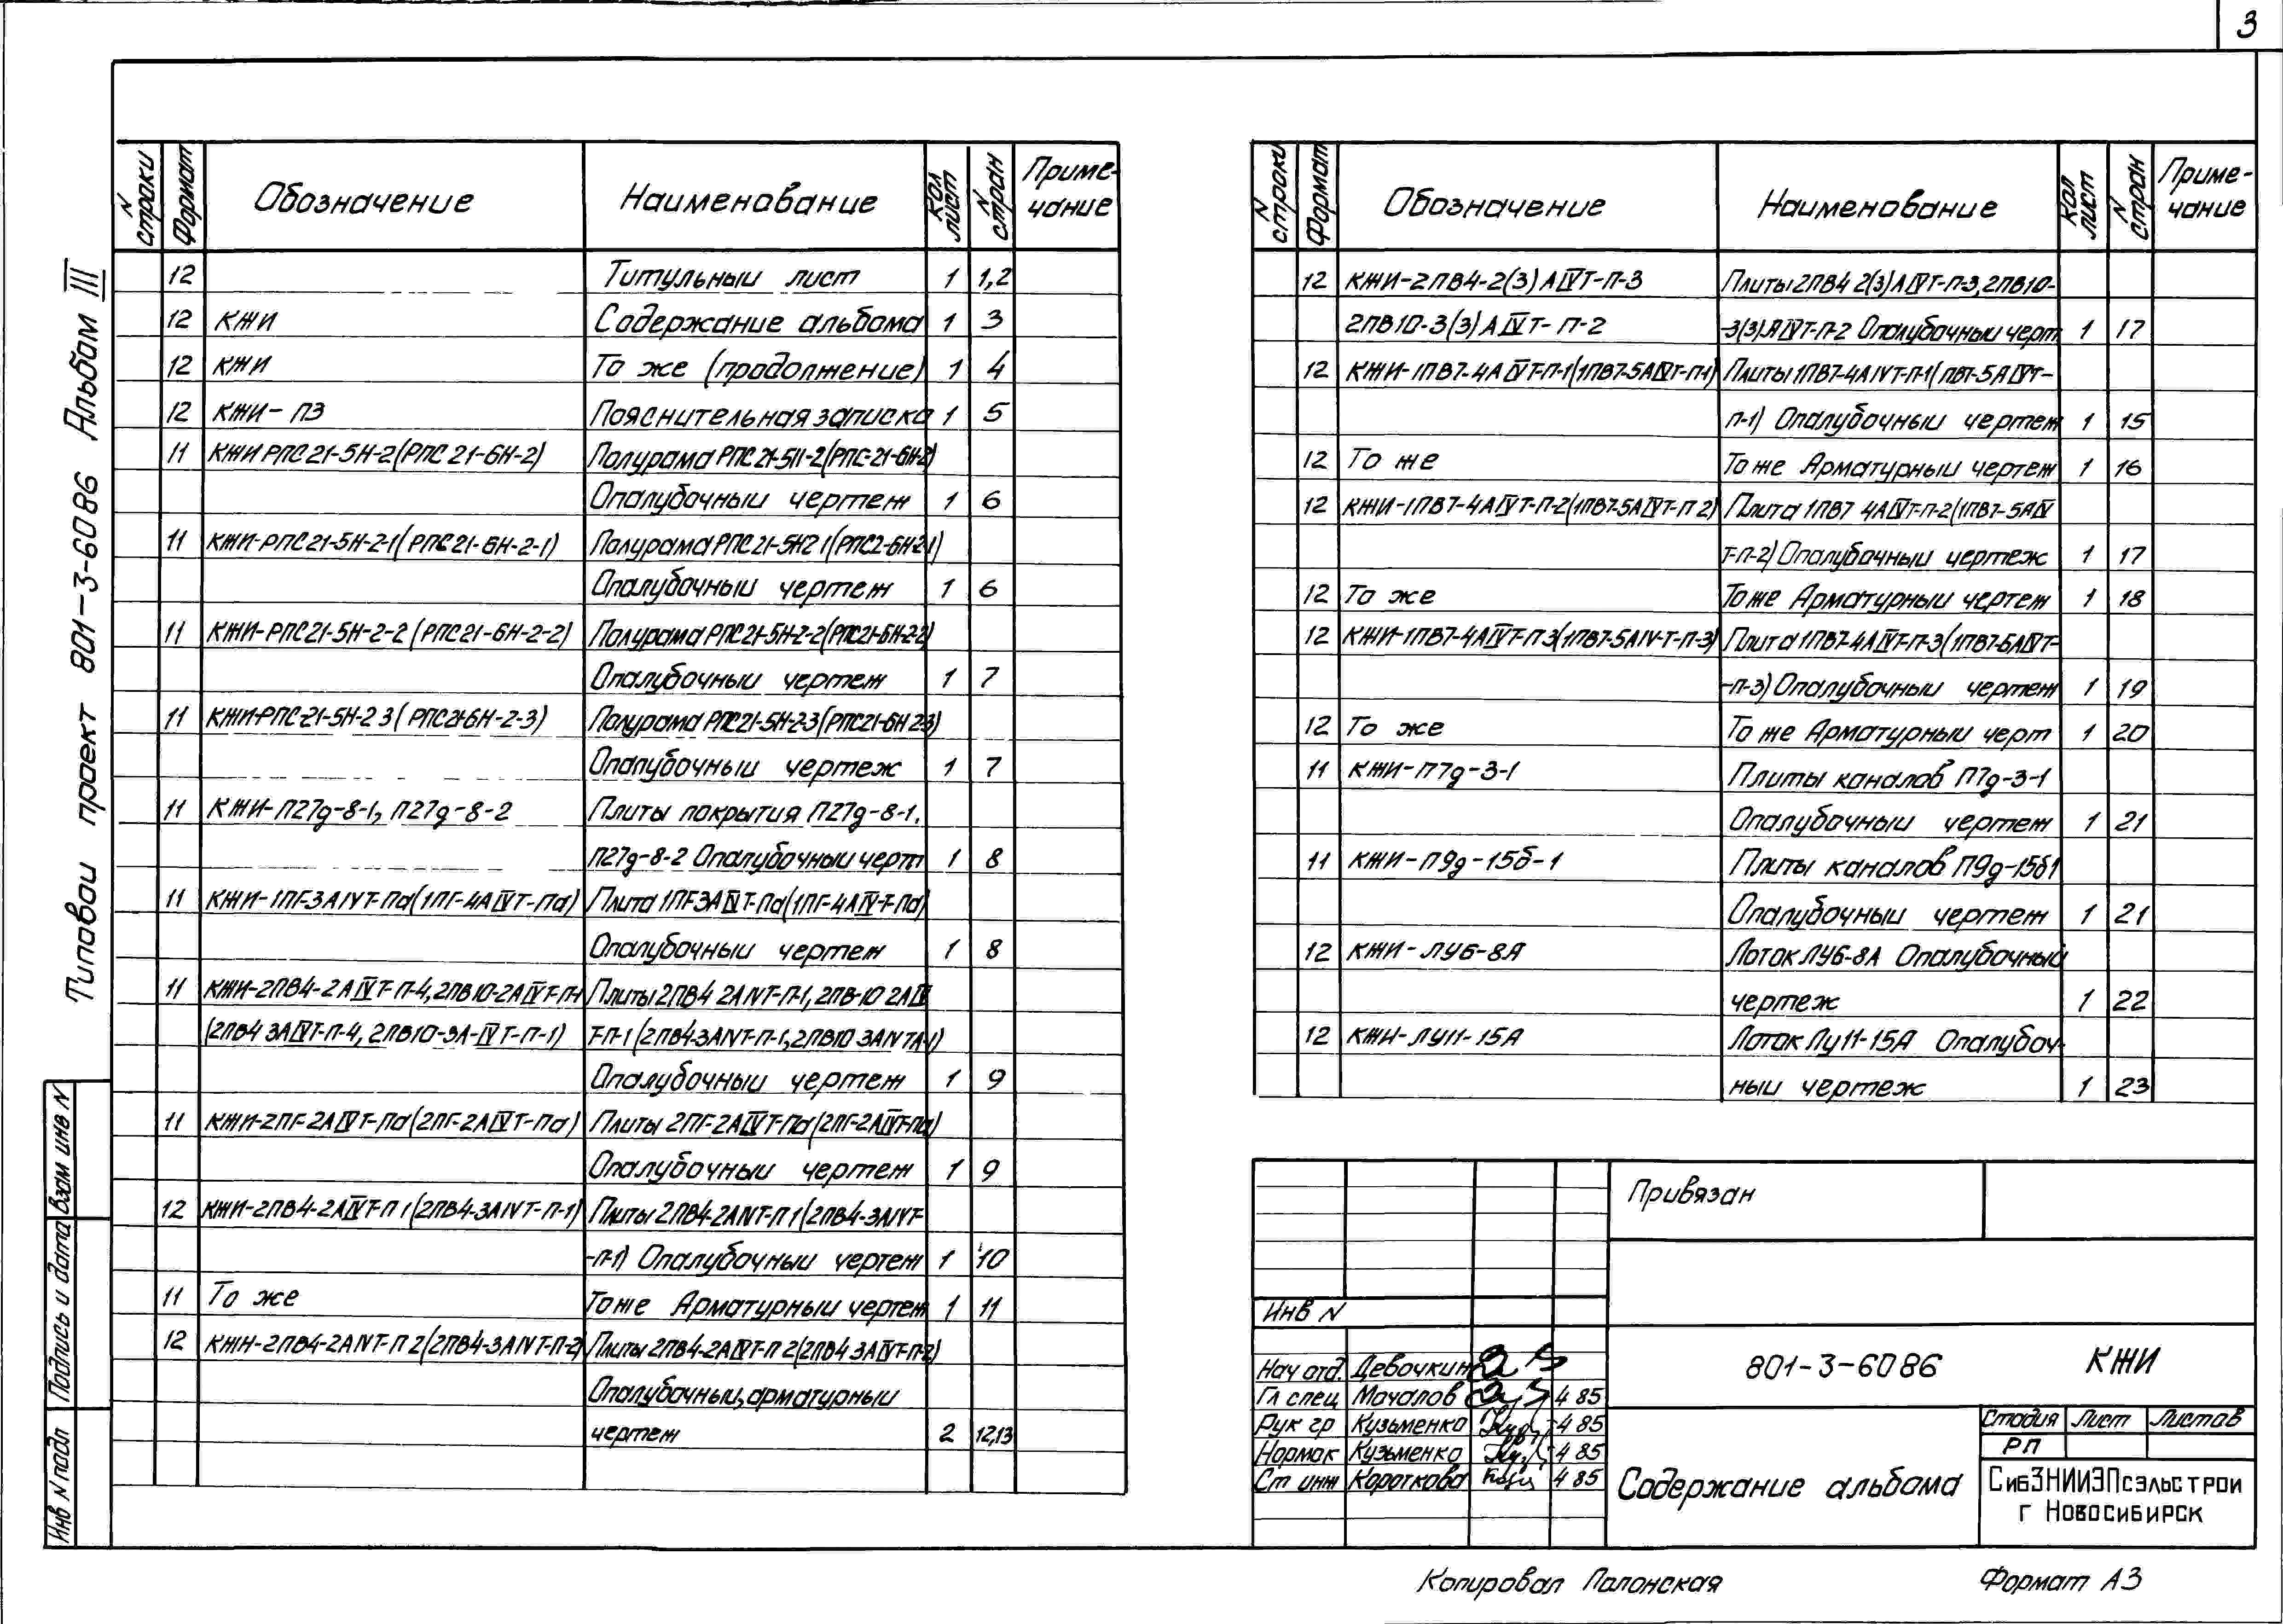 3
Типовой проект 801-3-6086 Альбом III
N строки Формат Обозначение Наименование Кол лист N стран Приме-чание
12 Титульный лист 1 1,2
12 КЖИ Содержание альбома 1 3
12 КЖИ То же (продолжение) 1 4
12 КЖИ-ПЗ Пояснительная записка 1 5
11 КЖИ РПС 21-5Н-2(РПС 21-6Н-2) Полурама РПС 21-5Н-2(РПС-21-6Н-2)
Опалубочный чертеж 1 6
11 КЖИ-РПС21-5Н-2-1(РПС21-6Н-2-1) Полурама РПС21-5Н2 1(РПС2-6Н-2-1)
Опалубочный чертеж 1 6
11 КЖИ-РПС21-5Н-2-2(РПС21-6Н-2-2) Полурама РПС21-5Н-2-2(РПС21-6Н-2-2)
Опалубочный чертеж 1 7
11 КЖИ-РПС-21-5Н-2 3(РПС21-6Н-2-3) Полурама РПС21-5Н-2-3(РПС21-6Н 2-3)
Опалубочный чертеж 1 7
11 КЖИ-П27д-8-1, П27д-8-2 Плиты покрытия П27д-8-1,
П27д-8-2 Опалубочный черт 1 8
11 КЖИ-1ПГ-3АIVТ-Па(1ПГ-4АIVТ-Па) Плита 1ПГ-3АIVТ-Па(1ПГ-4АIV-Т-Па)
Опалубочный чертеж 1 8
11 КЖИ-2ПВ4-2АIVТ-П-4,2ПВ10-2АIVТ-П-1 Плиты 2ПВ4 2АIVТ-П-1, 2ПВ-10 2АIV
(2ПВ4 3АIVТ-П-4, 2ПВ10-3А-IVТ-П-1) Т-П-1(2ПВ4-3АIVТ-П-1,2ПВ10 3АIVТП-1)
Опалубочный чертеж 1 9
11 КЖИ-2ПГ-2АIVТ-Па(2ПГ-2АIVТ-Па) Плиты 2ПГ-2АIVТ-Па(2ПГ-2АIVТ-Па)
Опалубочный чертеж 1 9
12 КЖИ-2ПВ4-2АIVТ-П 1(2ПВ4-3АIVТ-П-1) Плиты 2ПВ4-2АIVТ-П 1(2ПВ4-3АIVТ-
-П-1) Опалубочный чертеж 1 10
11 То же То же Арматурный чертеж 1 11
12 КЖИ-2ПВ4-2АIVТ-П 2(2ПВ4-3АIVТ-П-2) Плиты 2ПВ4-2АIVТ-П 2(2ПВ4 3АIVТ-П-2)
Опалубочный, арматурный
чертеж 2 12,13
N строки Формат Обозначение Наименование Кол лист N стран Приме-чание
12 КЖИ-2ПВ4-2(3)АIVТ-П-3 Плиты 2ПВ4 2(3)АIVТ-П-3,2ПВ10-
2ПВ10-3(3)АIVТ-П-2 -3(3)АIVТ-П-2 Опалубочный черт 1 17
12 КЖИ-1ПВ7-4АIVТ-П-1(1ПВ7-5АIVТ-П-1) Плиты 1ПВ7-4АIVТ-П-1(ПВ7-5АIVТ-
П-1) Опалубочный чертеж 1 15
12 То же То же Арматурный чертеж 1 16
12 КЖИ-1ПВ7-4АIVТ-П-2(1ПВ7-5АIVТ-П 2) Плита 1ПВ7 4АIVТ-П-2(1ПВ7-5АIV
Т-П-2) Опалубочный чертеж 1 17
12 То же То же Арматурный чертеж 1 18
12 КЖИ-1ПВ7-4АIVТ-П 3(1ПВ7-5АIV-Т-П-3) Плита 1ПВ7-4АIVТ-П-3(1ПВ7-5АIVТ-
-П-3) Опалубочный чертеж 1 19
12 То же То же Арматурный черт 1 20
11 КЖИ-П7д-3-1 Плиты каналов П7д-3-1
Опалубочный чертеж 1 21
11 КЖИ-П9д-15б-1 Плиты каналов П9д-15б1
Опалубочный чертеж 1 21
12 КЖИ-ЛУ6-8А Лоток ЛУ6-8А Опалубочный
чертеж 1 22
12 КЖИ-ЛУ11-15А Лоток Лу11-15А Опалубоч-
ный чертеж 1 23
Привязан
Инв N
Нач отд. Девочкин
Гл спец Мочалов 4 85
Рук гр Кузьменко 4 85
Нормок Кузьменко 4 85
Ст инж Короткова 4 85
801-3-6086 КЖИ
Содержание альбома
Стадия Лист Листов
РП
СибЗНИИЭПсэльстрой
г Новосибирск
Инв N подл Подпись и дата Взам инв N
Копировал Полонская Формат А3